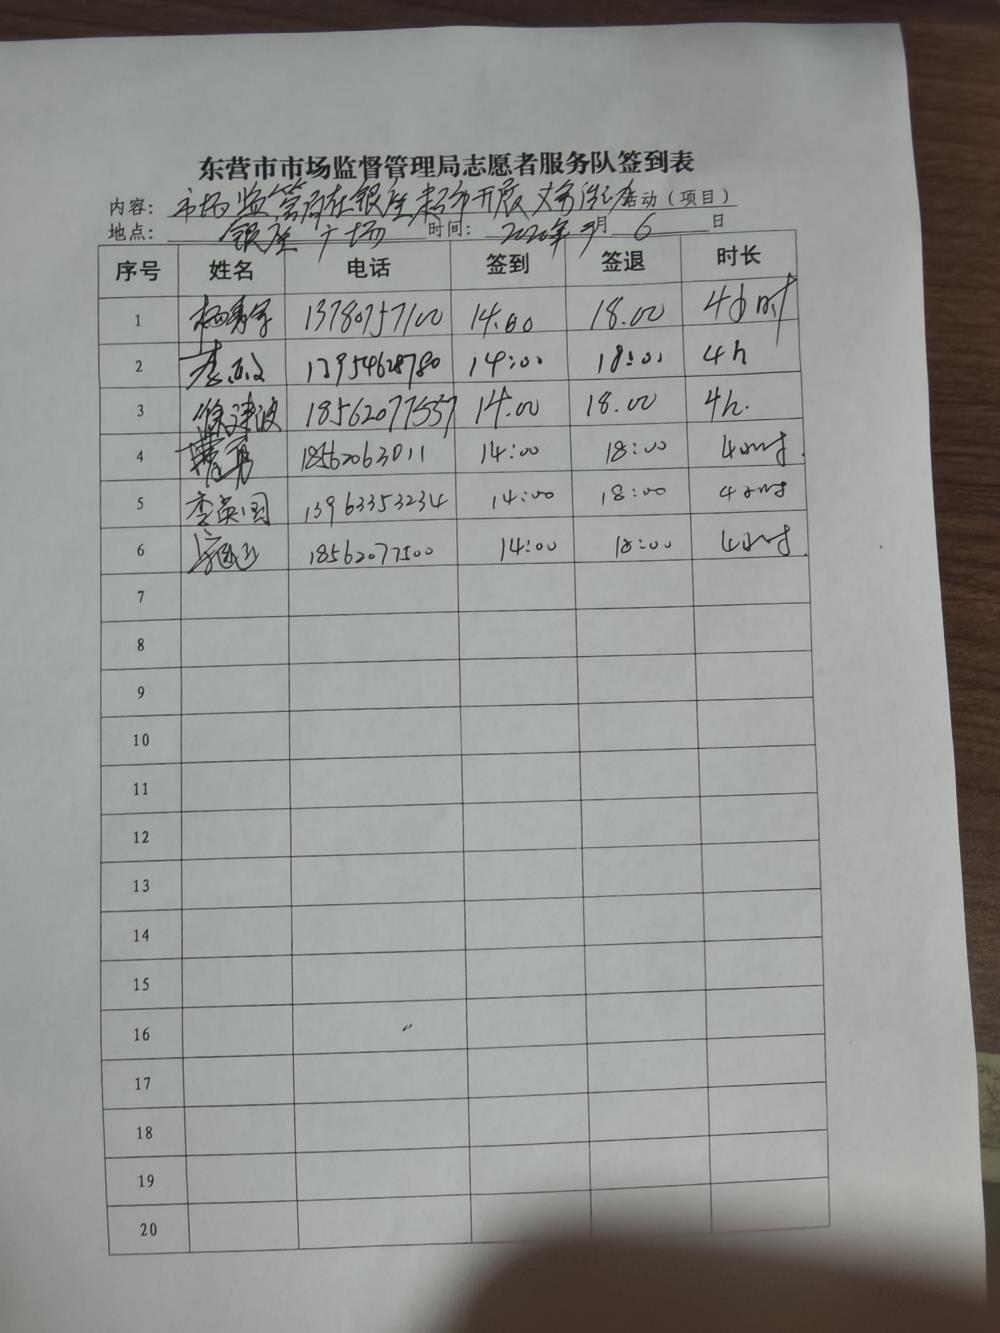 东营市市场监督管理局志愿者服务队签到表
内容：市场监管所在银座超市开展义务活动（项目）
地点：银座广场 时间：2020年 月 6 日
序号 姓名 电话 签到 签退 时长
1 13780757100 14.00 18.00 4小时
2 13954628780 14:00 18:00 4h
3 徐建波 18562077557 14.00 18.00 4h.
4 18562063011 14:00 18:00 4小时.
5 李英国 13963353234 14:00 18:00 4小时
6 18562077500 14:00 18:00 4小时.
7
8
9
10
11
12
13
14
15
16
17
18
19
20